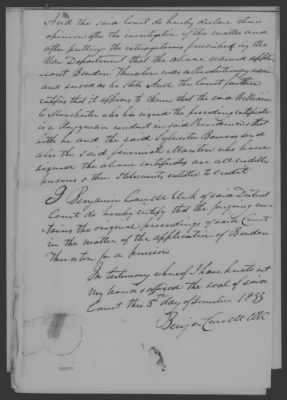 And the said Court do hereby declare their
opinion after the investigation of the matter and
after putting the interrogatories prescribed by the
War Department that the above named applicant
was a Revolutionary
and served as he states And the Court further
certifies that it appears to them that the said William
Manchester who has signed the preceding certificate
is a Clergyman resident in said that
both he and the said Sylvester and
also the said who have
signed the above certificates are all credible
persons & their statements entitled to credit
I Benjamin Clerk of said
Court do hereby certify that the foregoing contains
the original proceedings of said Court
in the matter of the application of
Thurston for a pension
In testimony whereof I have hereto set
my hand & affixed the seal of said
Court this 5th day of 1833